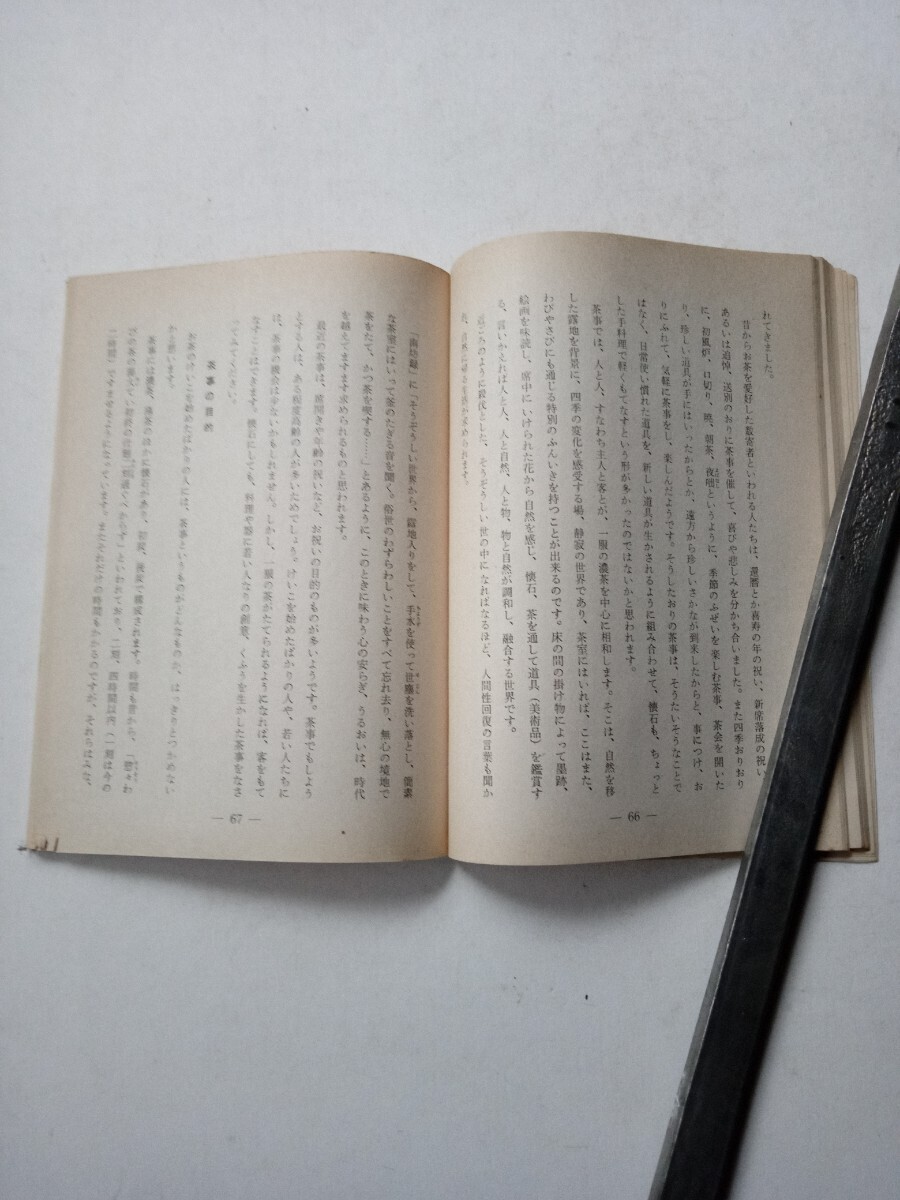 れてきました。
昔からお茶を愛好した数寄者といわれる人たちは、還暦とか喜寿の年の祝い、新席落成の祝い
あるいは追悼、送別のおりに茶事を催して、喜びや悲しみを分かち合いました。また四季おりおり
に、初風炉、口切り、暁、朝茶、夜咄というように、季節のふぜいを楽しむ茶事、茶会を開いた
り、珍しい道具が手にはいったからとか、遠方から珍しいさかなが到来したからと、事につけ、お
りにふれて、気軽に茶事をし、楽しんだようです。そうしたおりの茶事は、そうたいそうなことで
はなく、日常使い慣れた道具を、新しい道具が生かされるように組み合わせて、懐石も、ちょっと
した手料理で軽くもてなすという形が多かったのではないかと思われます。
茶事では、人と人、すなわち主人と客とが、一服の濃茶を中心に相和します。そこは、自然を移
した露地を背景に、四季の変化を感受する場、静寂の世界であり、茶室にはいれば、ここはまた、
わびやさびにも通じる特別のふんいきを持つことが出来るのです。床の間の掛け物によって墨蹟、
絵画を味読し、席中にいけられた花から自然を感じ、懐石、茶を通して道具（美術品）を鑑賞す
る、言いかえれば人と人、人と自然、人と物、物と自然が調和し、融合する世界です。
近ごろのように殺伐とした、そうぞうしい世の中になればなるほど、人間性回復の言葉も聞か
れ、自然に帰る生活が求められます。
— 66 —
「南坊録」に「そうぞうしい世界から、露地入りをして、手水を使って世塵を洗い落とし、簡素
な茶室にはいって茶のたぎる音を聞く。俗世のわずらわしいことをすべて忘れ去り、無心の境地で
茶をたて、かつ茶を喫する……」とあるように、このときに味わう心の安らぎ、うるおいは、時代
を越えてますます求められるものと思われます。
最近の茶事は、席開きや年齢の祝いなど、お祝いの目的のものが多いようです。茶事でもしよう
とする人は、ある程度高齢の人が多いためでしょう。けいこを始めたばかりの人や、若い人たちに
は、茶事の機会は少ないかもしれません。しかし、一服の茶がたてられるようになれば、客をもて
なすことはできます。懐石にしても、料理や器に若い人なりの創意、くふうを生かした茶事をなさ
ってみてください。
茶事の目的
お茶のけいこを始めたばかりの人には、茶事というものがどんなものか、はっきりとつかめない
かと思います。
茶事には濃茶、薄茶のほかに懐石があり、初炭、後炭で構成されます。時間も昔から、「碧々わ
びの茶の湯大てい初終の仕懸二刻過ぐべからず」といわれており、二刻、四時間以内（一刻は今の
二時間）ですませるようになっています。またそれだけの時間もかかるのですが、それらはみな、
— 67 —